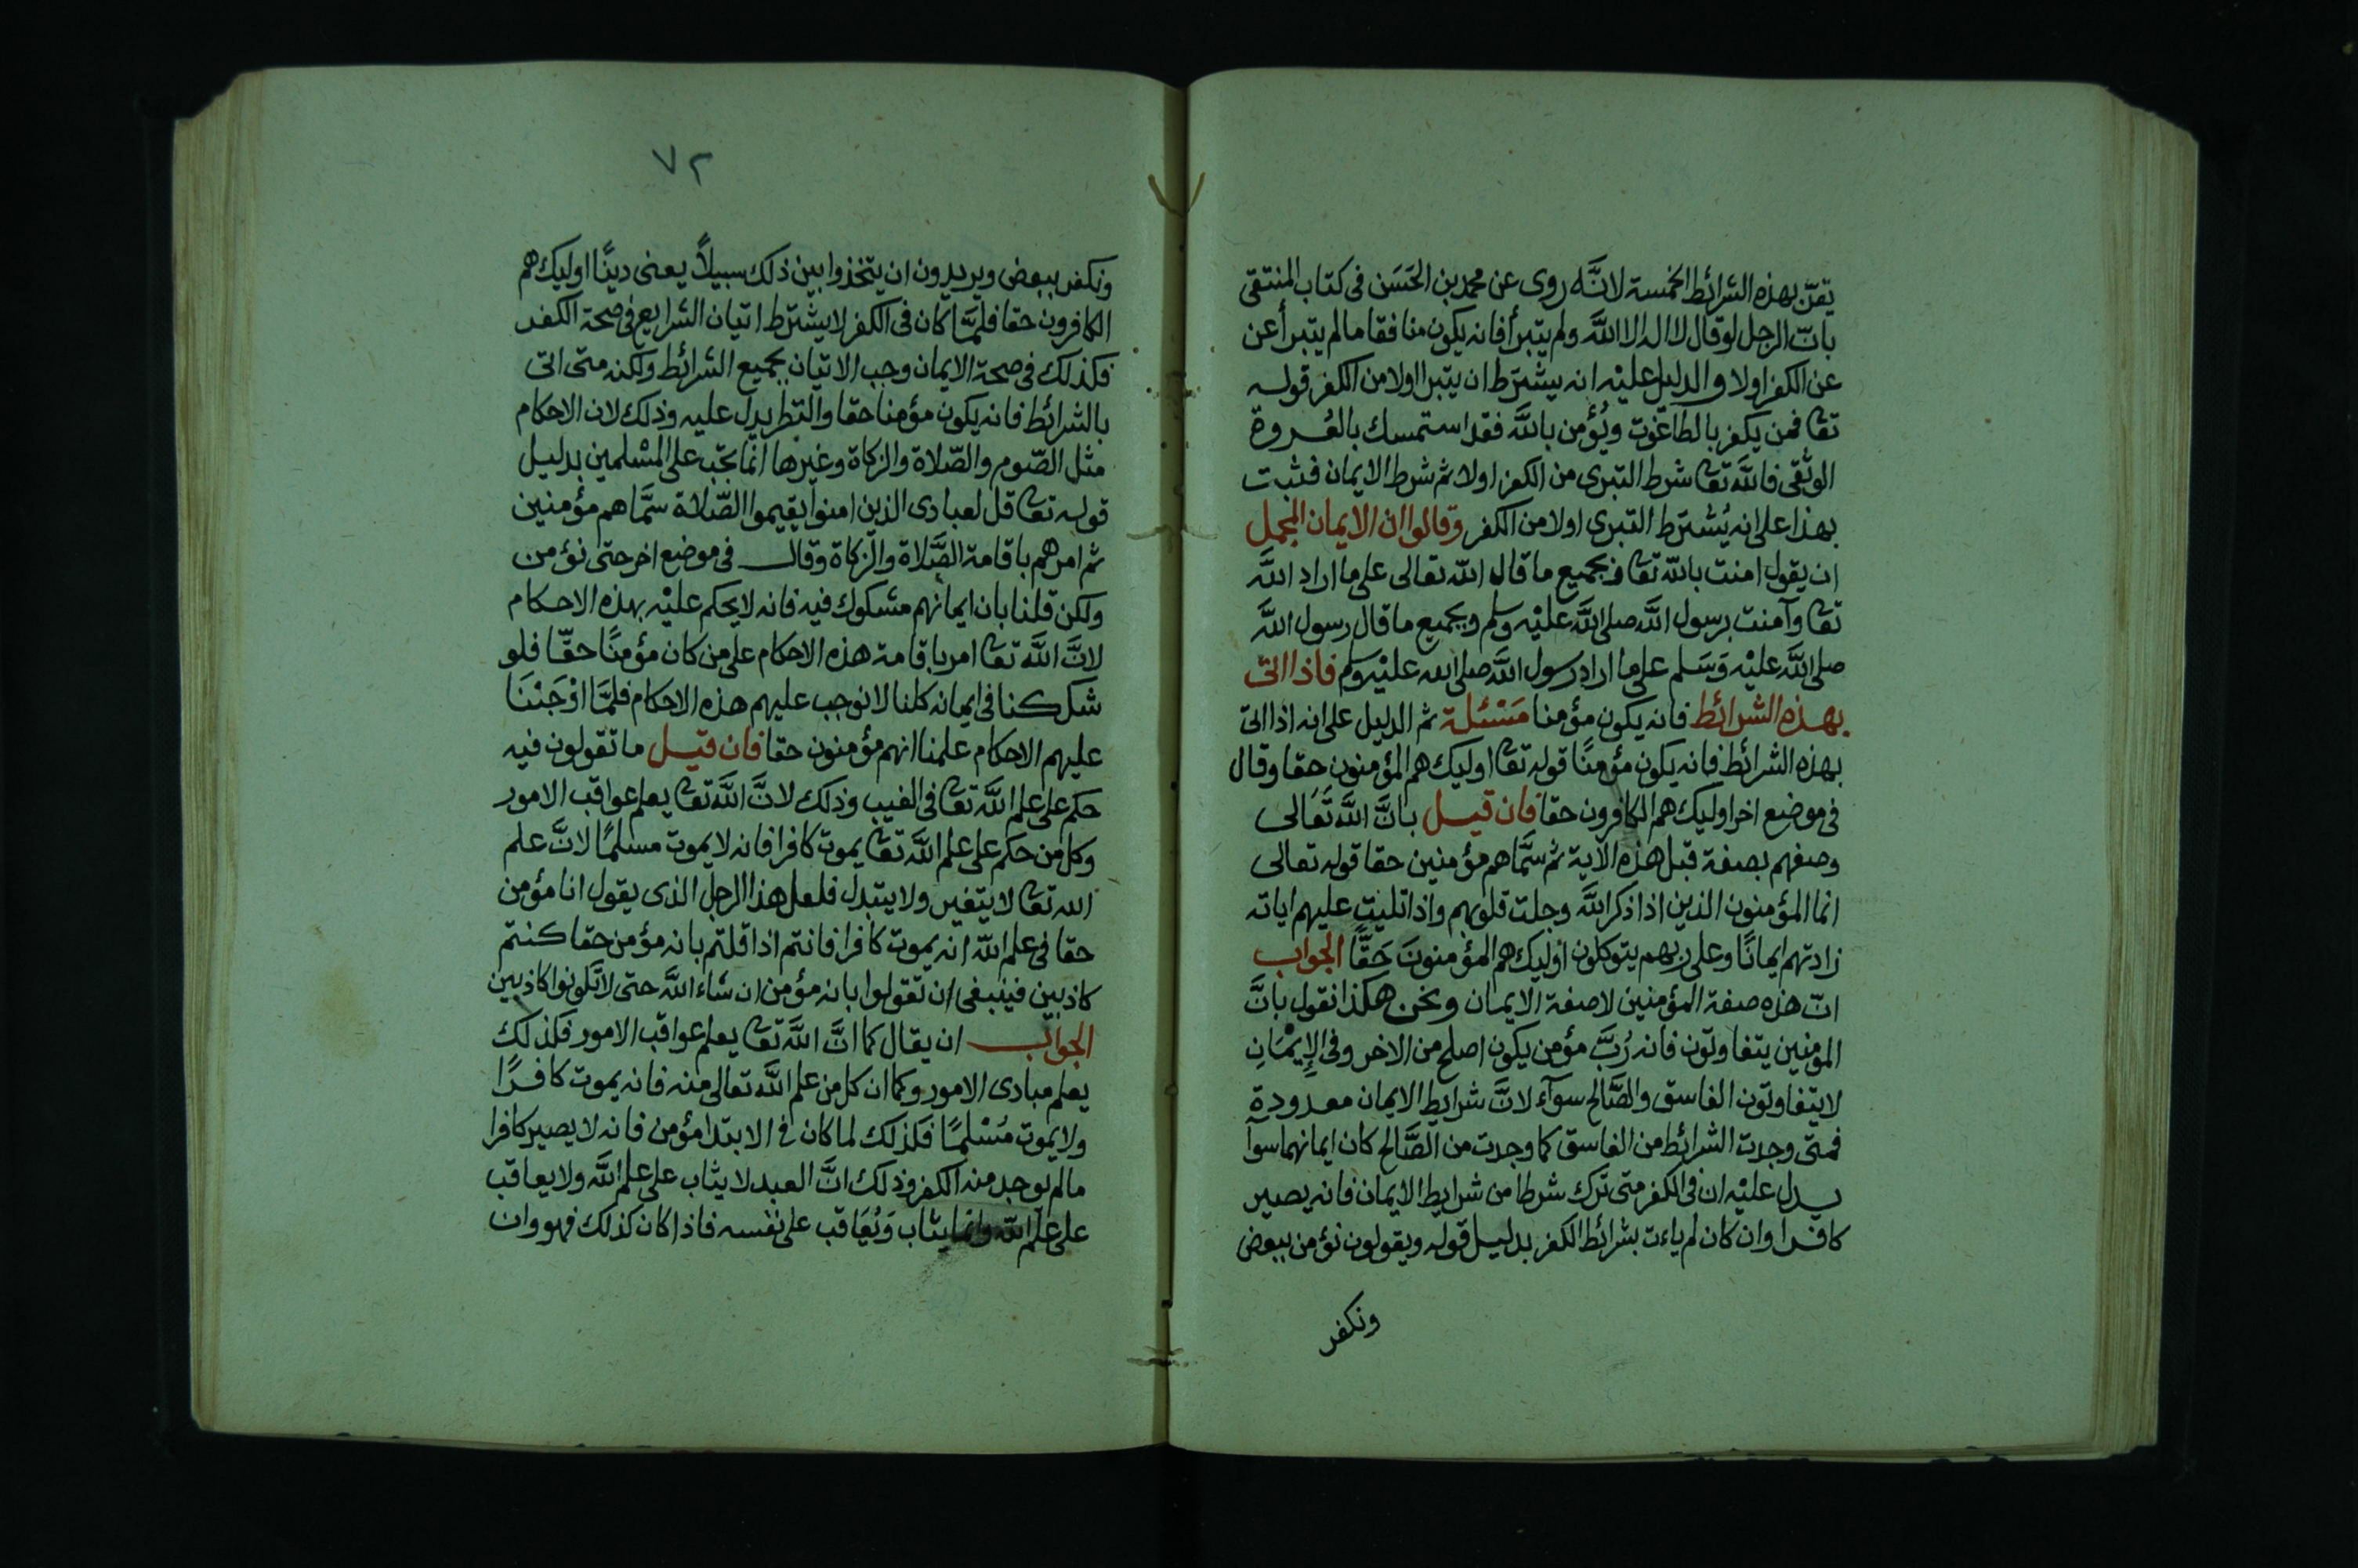 يقرّ بهذه الشرائط الخمسة لانَّه روى عن محمد بن الحَسَن فى كتاب المنتقى
بانّ الرجل لو قال لا اله الا اللّه ولم يتبرأ فانه يكون منافقا مالم يتبرأ عن
عن الكفر اولا والدليل عليْه انه يشترط ان يتبرا اولا من الكفر قوله
تعا فمن يكفر بالطاغوت ويُؤمن باللَّه فقد استمسك بالعُروة
الوثقى فاللَّه تعا شرط التبرى من الكفر اولا ثم شرط الايمان فثبت
بهذا على انه يُشترط التبرى اولا من الكفر وقالوا ان الايمان المجمل
ان يقول امنت باللّه تعا وبجميع ما قال اللّه تعالى على ما اراد اللَّه
تعا وآمنت برسول اللَّه صلى اللَّه عليْه وسلم وبجميع ما قال رسول اللَّه
صلى اللَّه عليْه وَسَلم على ما اراد رسول اللَّه صلى الله عليْه وسلم فاذا اتى
بهذه الشرائط فانه يكون مؤمنا مَسْئلة ثم الدليل على انه اذا اتى
بهذه الشرائط فانه يكون مؤمنًا قوله تعا اوليك هم المؤمنون حقا وقال
فى موضع اخر اوليك هم الكافرون حقا فان قيل بانَّ اللَّه تَعَالى
وصفهم بصفة قبل هذه الآية ثم سمَّاهم مؤمنين حقا قوله تعالى
انما المؤمنون الذين اذا ذكر اللَّه وجلت قلوبهم واذا تليت عليهم اياته
زادتهم ايمانًا وعلى ربهم يتوكلون اوليك هم المؤمنونَ حَقًّا الجواب
انّ هذه صفة المؤمنين لا صفة الايمان ونحن هكذا نقول بانَّ
المؤمنين يتفاوتون فانه رُبَّ مؤمن يكون اصلح من الاخر وفى الإِيمْانِ
لا يتفاوتون الفاسق والصَّالح سوآء لانَّ شرايط الايمان معدودة
فمتى وجدت الشرائط من الفاسق كما وجدت من الصَّالح كان ايمانهما سوآ
يدل عليْه ان فى الكفر متى ترك شرطا من شرايط الايمان فانه يصير
كافرا وان كان لم ياءت بشرائط الكفر بدليل قوله ويقولون نؤمن ببعض
ونكفر
٧٢
ونكفر ببعض ويريدون ان يتخذوا بين ذلك سبيلاً يعنى دينًا اوليك هم
الكافرون حقا فلمَّا كان فى الكفر لا يشترط اتيان الشرايع فى صحة الكفر
فكذلك فى صحة الايمان وجب الاتيان بجميع الشرائط ولكنه متى اتى
بالشرائط فانه يكون مؤمنا حقا والنظر يدل عليه وذلك لان الاحكام
مثل الصّوم والصّلاة والزكاة وغيرها انما تجب على المسْلمين بدليل
قوله تعا قل لعبادى الذين امنوا يقيموا الصّلاة سمَّاهم مؤمنين
ثم امرهم باقامة الصَّلاة والزكاة وقال فى موضع اخر حتى نؤمن
ولكن قلنا بان ايمانهم مشكوك فيه فانه لا يحكم عليْه بهذه الاحكام
لانَّ اللَّه تعا امر باقامة هذه الاحكام على من كان مؤمنًا حقّا فلو
شككنا فى ايمانه كلنا لا نوجب عليهم هذه الاحكام فلمَّا اوْجَبْنَا
عليهم الاحكام علمنا انهم مؤمنون حقا فان قيل ما تقولون فيه
حكم على علم اللَّه تعا فى الغيب وذلك لانَّ اللَّه تعا يعلم عواقب الامور
وكل من حكم على علم اللَّه تعا يموت كافرا فانه لا يموت مسلمًا لانَّ علم
الله تعا لا يتغير ولا يتبدل فلعل هذا الرجل الذى يقول انا مؤمن
حقا فى علم اللّه انه يموت كافرا فانتم اذا قلتم بانه مؤمن حقا كنتم
كاذبين فينبغى ان تقولوا بانه مؤمن ان شاء اللَّه حتى لا تكونوا كاذبين
الجواب ان يقال كما انَّ اللَّه تعا يعلم عواقب الامور فكذلك
يعلم مبادى الامور وكما ان كل من علم اللَّه تعالى منه فانه يموت كافرًا
ولا يموت مُسْلمًا فكذلك لما كان فى الابتدا مؤمن فانه لا يصير كافرا
مالم توجد منه الكفر وذلك انَّ العبد لا يثاب على علم اللَّه ولا يعاقب
على علم اللّه وانما يثاب وَيُعَاقب على نفسه فاذا كان كذلك فهو وان